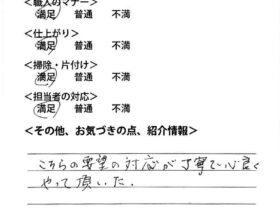 ＜職人のマナー＞
満足　普通　不満
＜仕上がり＞
満足　普通　不満
＜掃除・片付け＞
満足　普通　不満
＜担当者の対応＞
満足　普通　不満
＜その他、お気づきの点、紹介情報＞
こちらの要望の対応が丁寧で心良く
やって頂いた.